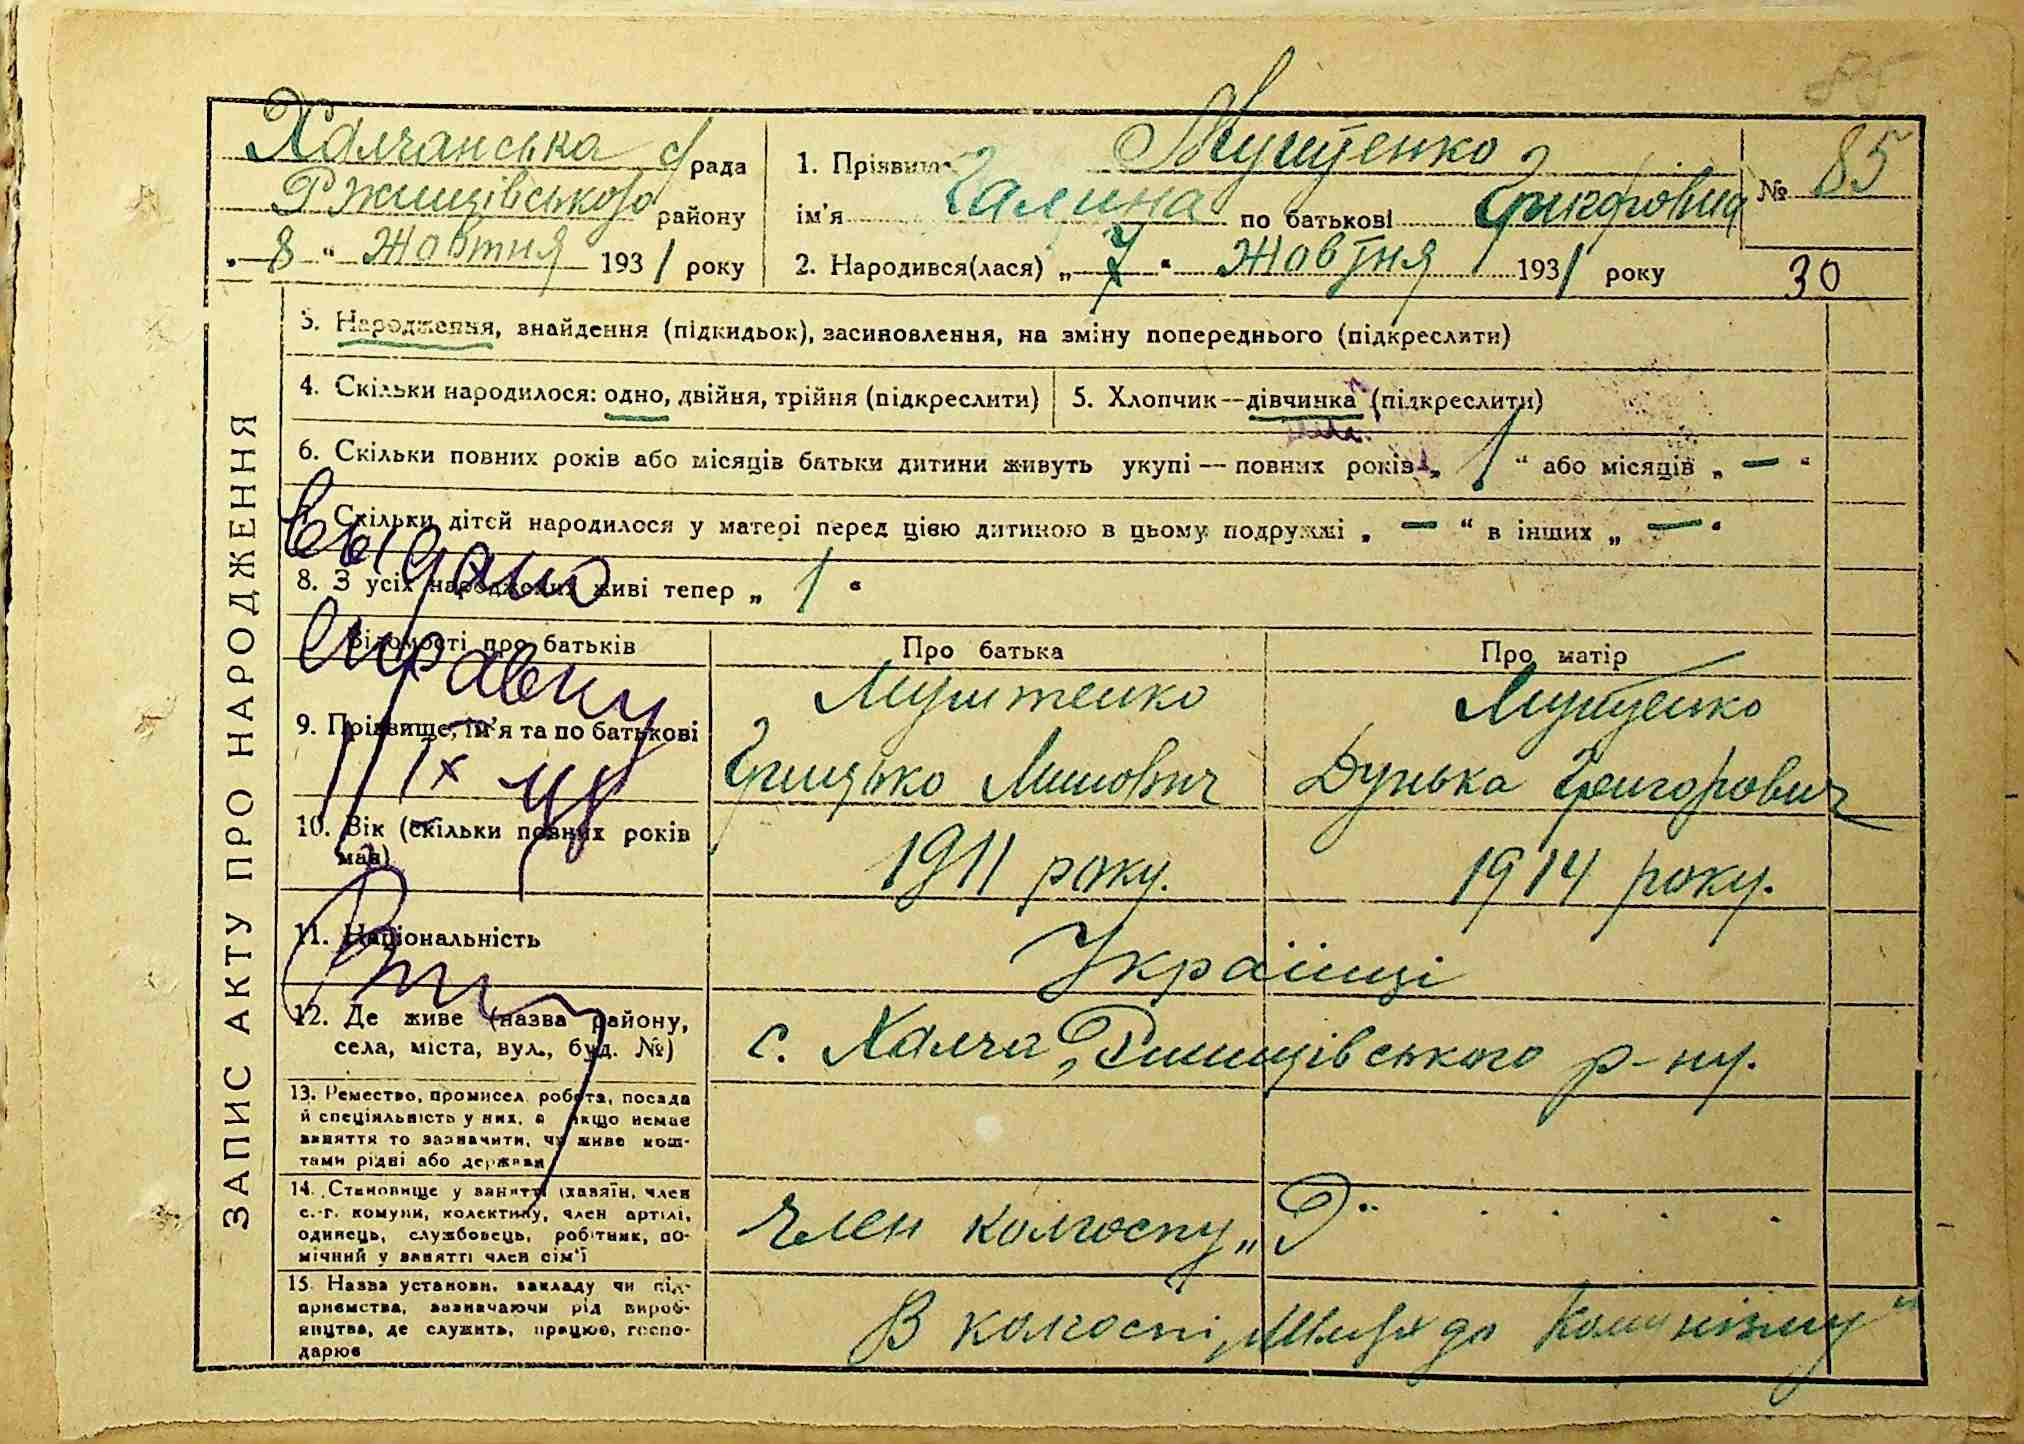 85
Халчанська с/рада
Ржищівського району
„ 8 “ Жовтня 1931 року
1. Прізвище Муштенко
ім'я Галина по батькові
2. Народився(лася) „ 7 “ Жовтня 1931 року
№ 85
30
ЗАПИС АКТУ ПРО НАРОДЖЕННЯ
3. Народження, внайдення (підкидьок), засиновлення, на зміну попереднього (підкреслити)
4. Скільки народилося: одно, двійня, трійня (підкреслити)
5. Хлопчик—дівчинка (підкреслити)
6. Скільки повних років або місяців батьки дитини живуть укупі — повних років „ 1 “ або місяців „ — “
7. Скільки дітей народилося у матері перед цією дитиною в цьому подружжі „ — “ в інших „ — “
8. З усіх народжених живі тепер „ 1 “
Выдано
справку
Відомості про батьків
Про батька
Про матір
9. Прізвище, ім'я та по батькові
Муштенко
Грицько Минович
Муштенко
Дунька Григорович
10. Вік (скільки повних років має)
1911 року.
1914 року.
11. Національність
Українці
12. Де живе (назва району,
села, міста, вул., буд. №)
с. Халча, Ржищівського р-ну.
13. Ремество, промисел, робота, посада
й спеціяльність у них, а якщо немає
вакяття то зазначити, чи живе кош-
тами рідні або держави
14. Становище у занятті (хазяїн, член
с.-г. комуни, колективу, член артілі,
одинець, службовець, робітник, по-
мічний у занятті член сім'ї
Член колгоспу
15. Назва установи, закладу чи під-
приємства, зазначаючи рід вироб-
ництва, де служить, працює, госпо-
дарює
В колгоспі „Шлях до Комунізму“